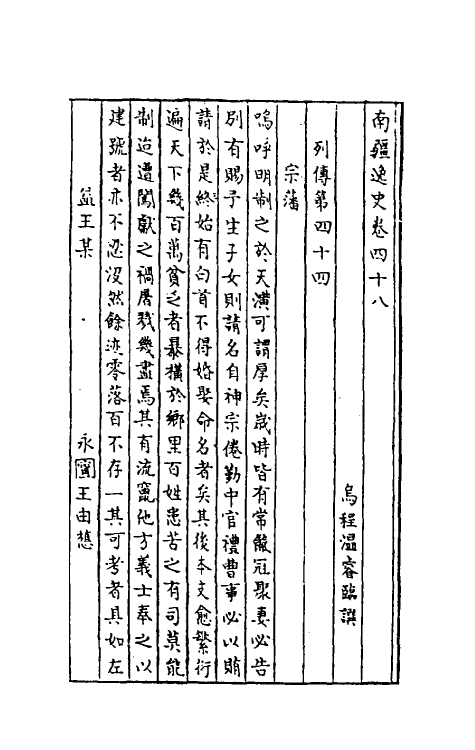 南疆逸史卷四十八
烏程温睿臨譔
列傳第四十四
宗藩
嗚呼明制之於天潢可謂厚矣歲時皆有常饌冠娶妻必告
別有賜予生子女則請名自神宗倦勤中官禮曹事必以賄
請於是終始有白首不得婚娶命名者矣其後本支愈繁衍
遍天下幾百萬貧乏者暴橫於鄉里百姓患苦之有司莫能
制迨遭闖獻之禍屠戮幾盡焉其有流竄他方義士奉之以
建號者亦不恐沒然餘迹零落百不存一其可考者具如左
益王某 永寧王由𣚴